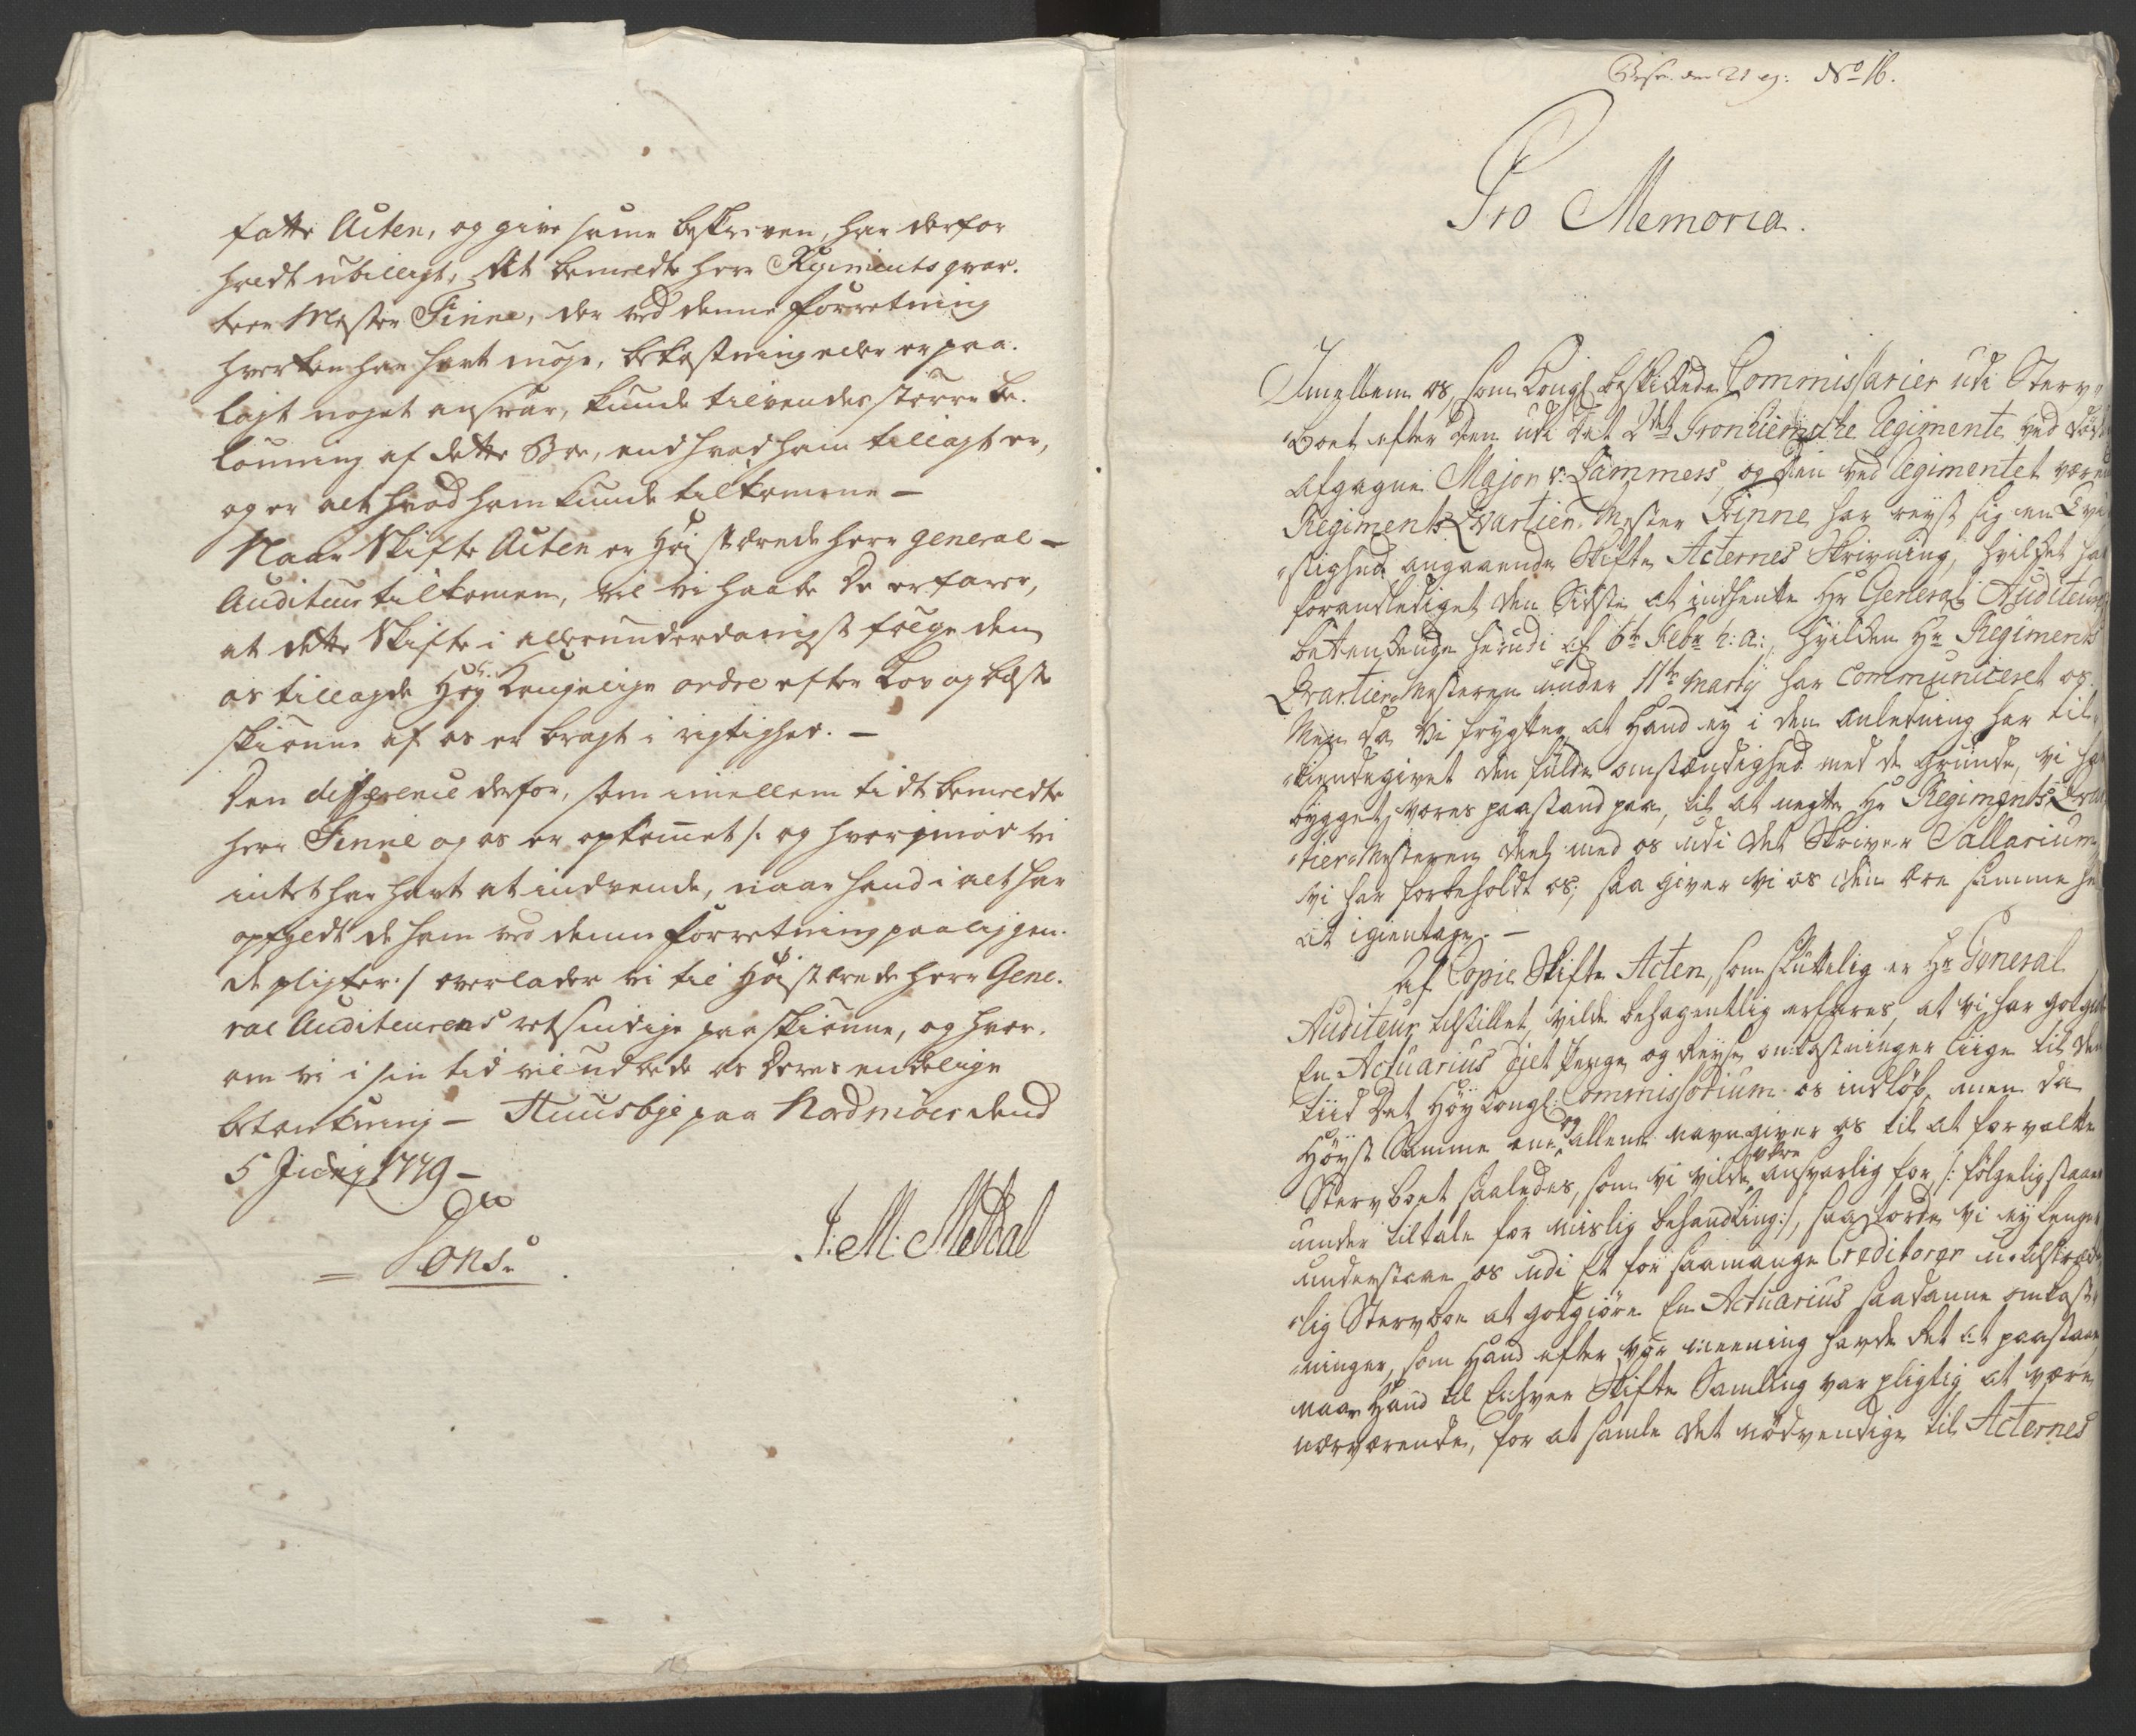 fatte Acten, og give same beskreven, har derfor
holdt ubilligt, At bemeldte Herr Regiments qvar-
teer Mester Finne, der ved denne Forretning
hverken har havt møje, bekostning eller er paa-
lagt noget ansvar, kunde tilvendes større be-
lønning af dette Boe, end hvad ham tillagt er,
og er alt hvad ham kunde tilkomme –
Naar Skifte Acten er Høistærede Herr General-
Auditeur tilkomen, vil vi haabe De erfarer,
at dette Skifte i allerunderdanigst følge den
os tillagde Høy Kongelige ordre efter Lov og beste
skiønne af os er bragt i rigtighed. –
Den difference derfor, som imellem tidt bemeldte
Herr Finne og os er opkommet /: og hvorimod vi
intet har havt at indvende, naar hand i alt har
opfyldt de ham ved denne Forretning paaliggen-
de pligter :/ overlader vi til Høistærede Herr Gene-
ral Auditeurens retsindige paaskiønne, og hvor-
om vi i sin tid vil udbede os Deres endelige
betænkning – Stuusbye paa Nordmøer dend
5 Junij 1779 –
Tons:
J: M: Meldal
No 16.
Pro Memoria.
Imellem os, som Kongl: beskikkede Commissarier udi Sterv-
boet efter Den udi Det 2det Tronhiemske Regimente ved død
afgagne Major v: Lammers, og Den ved Regimentet være
Regiments Qvarteer-Mester Finne har reyst sig en Tvi-
stighed angaaende Skifte Acternes Skrivning, hvilket har
foranlediget den Sidste at indhente Hr General Auditeurs
betænkende herudi af 6te Febr h: a:, hvilken Hr Regiments
Qvarteer-Mesteren under 11te Marty har communiceret os.
Men da Vi frygter at Hand ey i den anledning har til-
kiendegivet den fulde omstændighed med de grunde, vi har
bygget vores paastand paa, til at negte Hr Regiments Qvar
tier-Mesteren deel med os udi det Skriver Sallarium
vi har forbeholdt os; saa giver vi os den ære samme her
at igientage. –
Af Copie Skifte Acten, som sluttelig er Hr General
Auditeur tilstillet, vilde behagentlig erfares, at vi har godgiort
En Actuarius diet Penge og Reyse omkostninger liige til den
tiid Det Høy Kongl: Commissorium os indløb, men da
Høyst Samme ene og allene navngiver os til at forvalte
Stervboet saaledes, som vi vilde være ansvarlig for /: følgelig staae
under tiltale for mislig behandling :/, saa torde vi ey lenger
understaae os udi Et for saamange Creditorer utilstræk-
lig Stervboe at godgiøre En Actuarius saadanne omkost-
ninger, som Hand efter vor meening havde Ret at paastaae
naar Hand til Enhver Skifte Samling var pligtig at være
nærværende, for at samle det nødvendige til Acternes